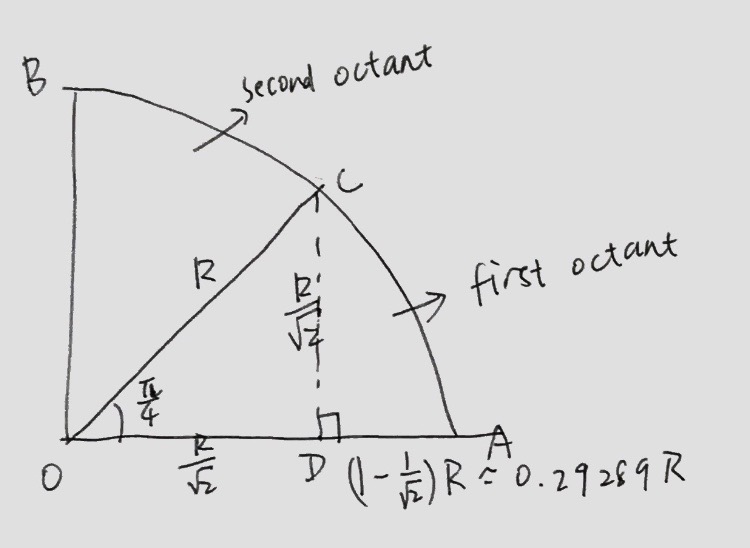 B
second octant
C
R
R/√2
first octant
π/4
O
R/√2
D
A
(1-1/√2)R ≈ 0.29289R